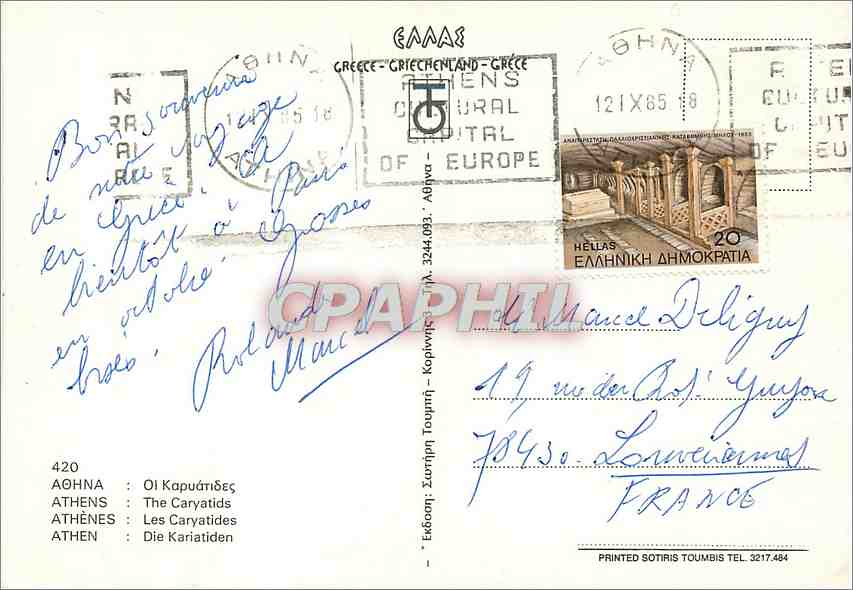 ΕΛΛΑΣ
GREECE - GRIECHENLAND - GRÈCE
ΑΘΗΝΑ
ATHENS
CULTURAL
CAPITAL
OF EUROPE
ΑΘΗΝΑ
12 IX 85 18
ΑΝΑΠΑΡΑΣΤΑΣΗ ΠΑΛΑΙΟΧΡΙΣΤΙΑΝΙΚΗΣ ΚΑΤΑΚΟΜΒΗΣ ΜΗΛΟΣ
HELLAS 20
ΕΛΛΗΝΙΚΗ ΔΗΜΟΚΡΑΤΙΑ
Bon souvenir
de notre voyage
en Grèce. A
bientôt à Paris
en octobre. Grosses
bises.
Roland
Marcel
CPAPHIL
Marcel Deligny
19, rue du
78430. Louveciennes
FRANCE
420
ΑΘΗΝΑ : ΟΙ Καρυάτιδες
ATHENS : The Caryatids
ATHÈNES : Les Caryatides
ATHEN : Die Kariatiden
Έκδοση: Σωτήρη Τουμπή – Κορίννης 3 – Τηλ. 3244.093. Αθήνα –
PRINTED SOTIRIS TOUMBIS TEL. 3217.484